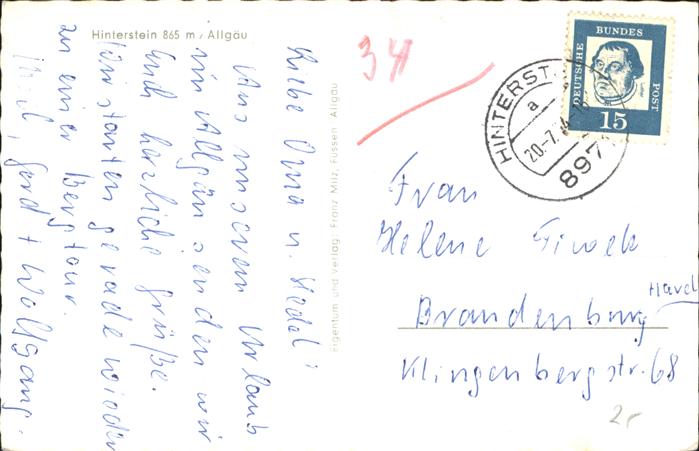 Hinterstein 865 m, Allgäu
Liebe Oma u. Hedel!
Aus unserem Urlaub
im Allgäu senden wir
Euch herzliche Grüße.
Wir starten gerade wieder
zu einer Bergtour.
Gerd + Wolfgang.
Eigentum und Verlag: Franz Milz, Füssen, Allgäu
34
DEUTSCHE BUNDES POST
15
HINTERST
a
20.-7.
897
Frau
Helene
Brandenburg
Havel
Klingenbergstr. 68
2,-